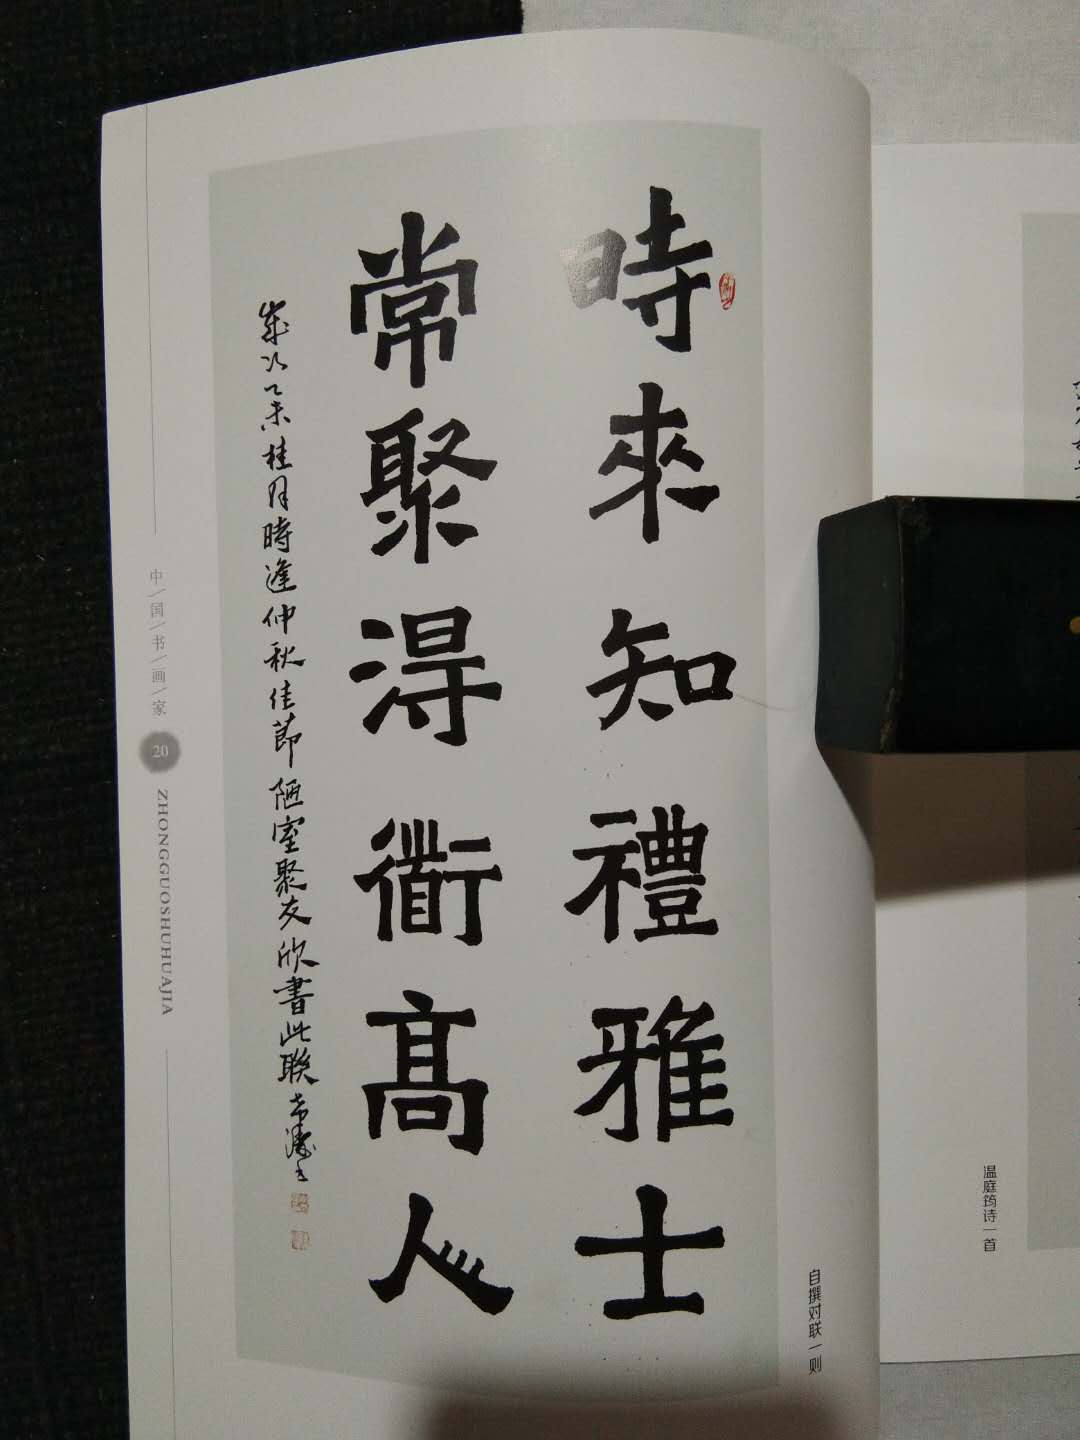 時來知禮雅士
常聚淂衜髙人
歲次乙未桂月時逢仲秋佳節陋室聚友欣書此聯
自撰对联一则
中国书画家
20
ZHONGGUOSHUHUAJIA
温庭筠诗一首